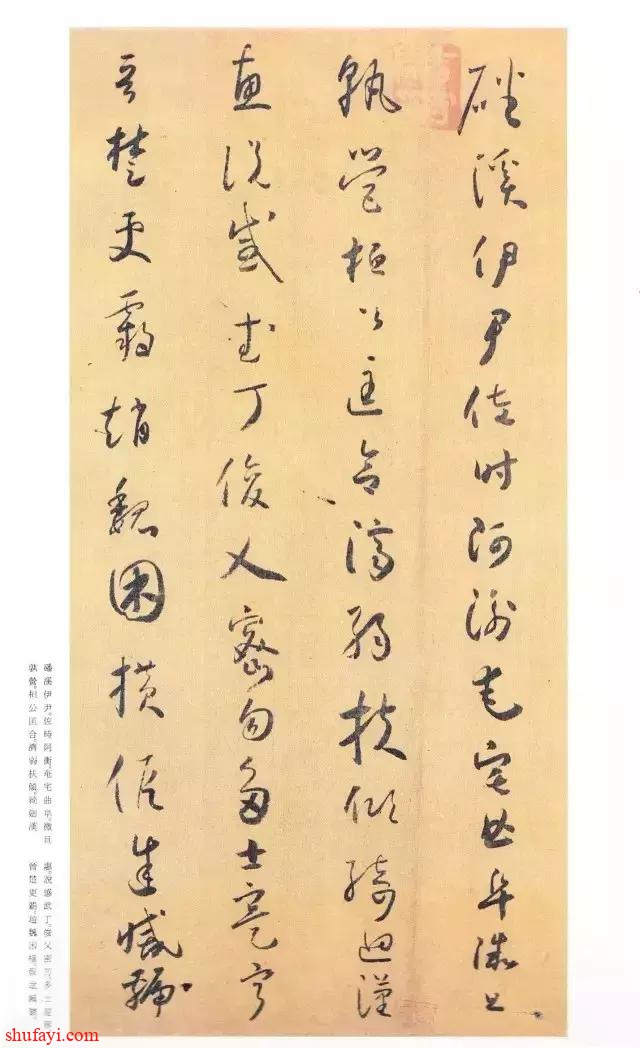 磻溪伊尹佐時阿衡奄宅曲阜微旦
孰營桓公匡合濟弱扶傾綺迴漢
惠說感武丁俊乂密勿多士寔寧
晉楚更霸趙魏困橫假途滅虢
磻溪伊尹。佐時阿衡。奄宅曲阜。微旦
孰營。桓公匡合。濟弱扶傾。綺迴漢
惠。說感武丁。俊乂密勿。多士寔寧
晉楚更霸。趙魏困橫。假途滅虢。
shufayi.com